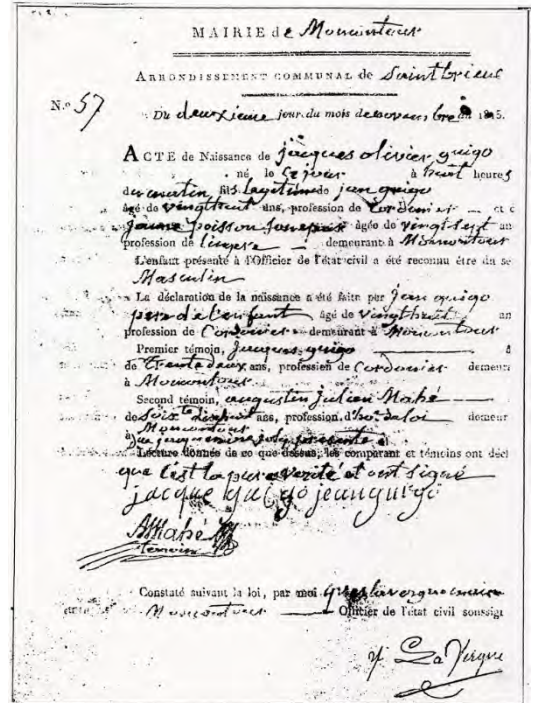 MAIRIE de Moncontour
ARRONDISSEMENT COMMUNAL de Saint brieuc
N.º 57
Du deuxieme jour du mois de novembre 1815.
ACTE de Naissance de jacques olivier guigo
né, le ce jour à huit heures
du matin fils legitime de jean guigo
âgé de vingthuit ans, profession de Cordonier et d
jeanne poisson son epouse âgée de vingt sept an
profession de demeurant à Moncontour
L'enfant présenté à l'Officier de l'état civil a été reconnu être du se
Masculin
La déclaration de la naissance a été faite par jean guigo
pere de l'enfant âgé de vingthuit an
profession de Cordonier demeurant à Moncontour
Premier témoin, Jacques guigo à
de trente deux ans, profession de Cordonier demeur
à Moncontour
Second témoin, augustin julien Mahé
de ans, profession d'ho. de loi demeur
à Moncontour
Lecture donnée de ce que dessus, les comparant et témoins ont décl
que c'est la pure verité et ont signé
jacque guigo jean guigo
AMahé
témoin
Constaté suivant la loi, par moi yves lavergne maire
Moncontour Officier de l'état civil soussig
y La Vergne